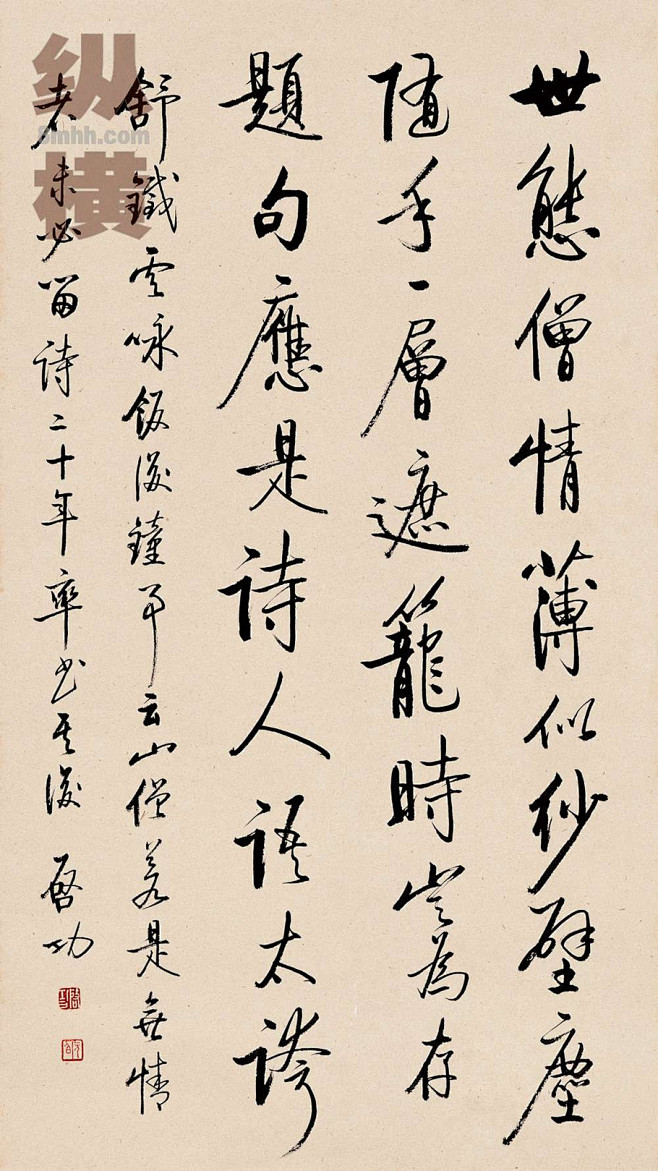 世態僧情薄似紗壁塵
隨手一層遮籠時豈為存
題句應是詩人語太誇
舒鐵雲咏飯後鐘事云山僧若是無情
者未必留詩二十年率書其後 啓功
纵横
8mhh.com